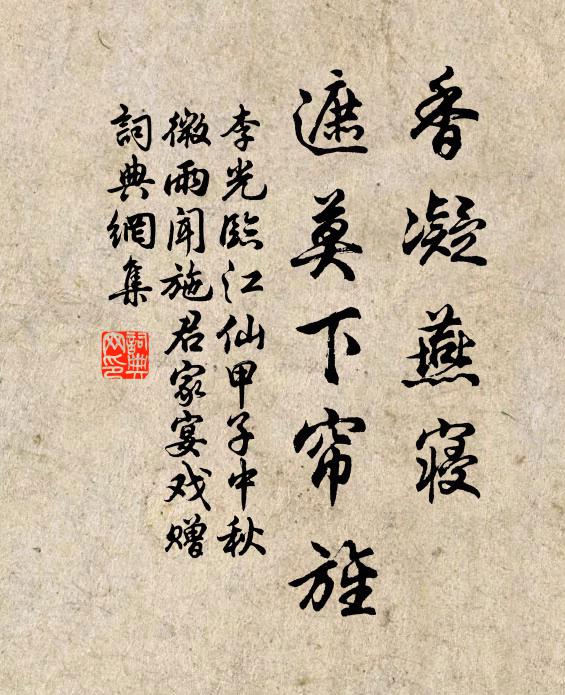 香凝燕寝
遮莫下帘旌
李光臨江仙甲子中秋
微雨闻施君家宴戏赠
詞典網集
詞典
网印